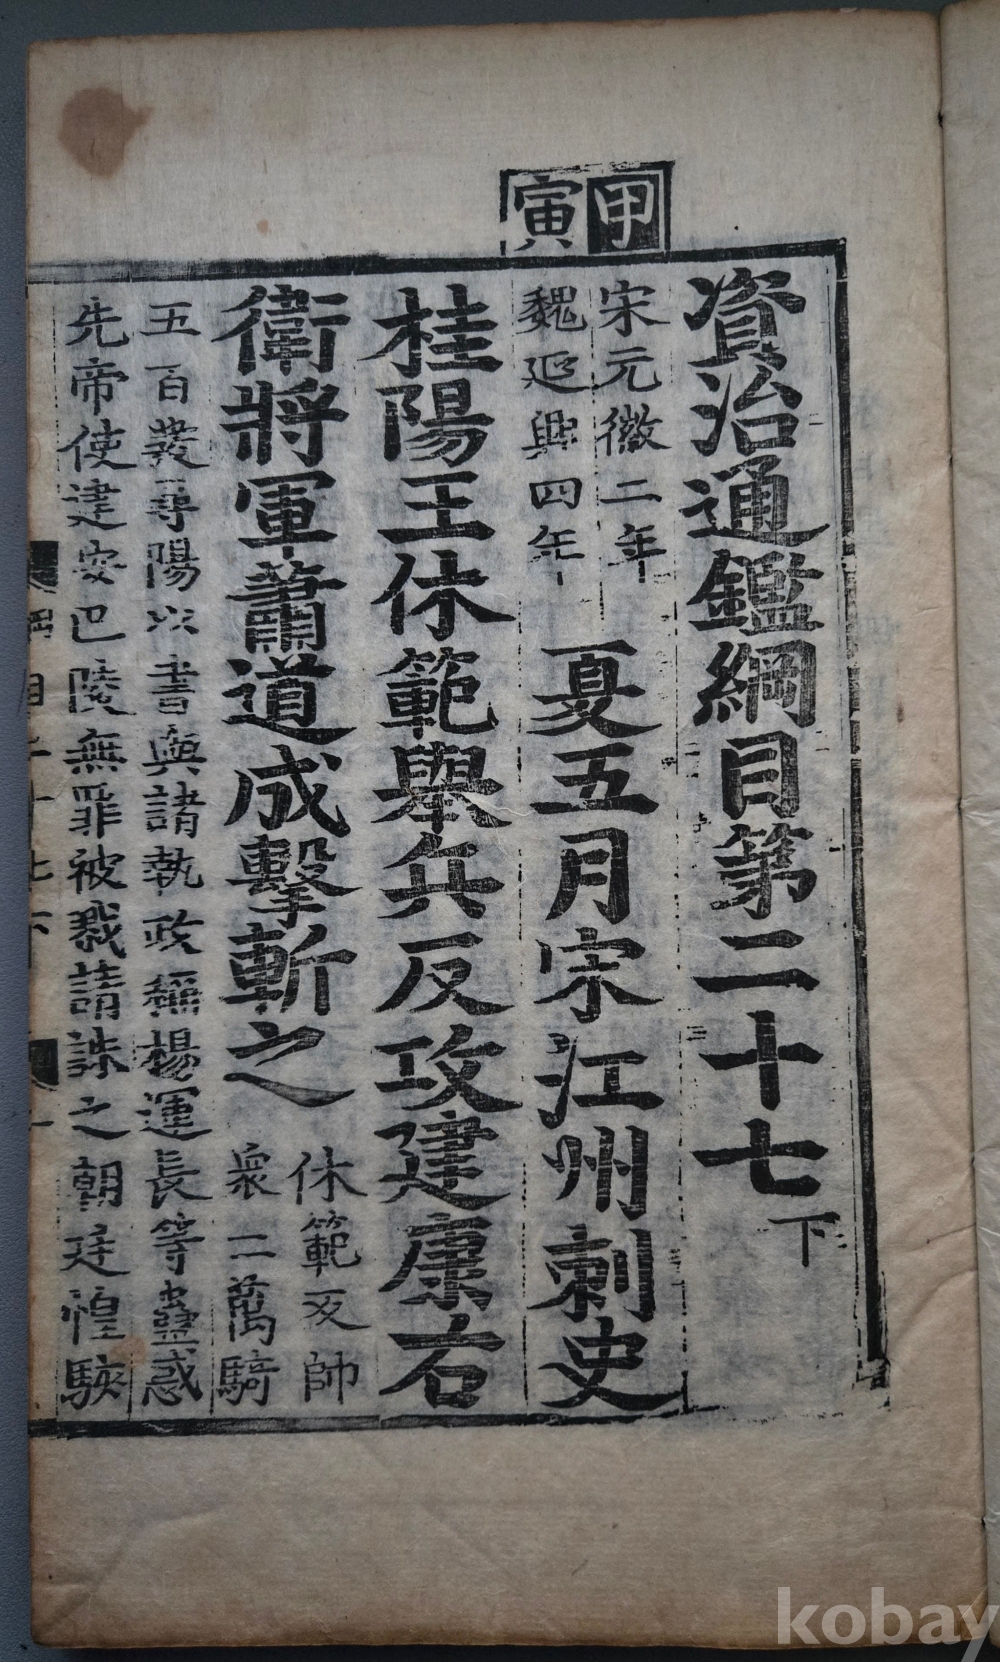 甲
寅
資治通鑑綱目第二十七下
宋元徽二年
魏延興四年
夏五月宋江州刺史
桂陽王休範舉兵反攻建康右
衛將軍蕭道成擊斬之
休範反帥
衆二萬騎
五百發尋陽以書與諸執政稱楊運長等蠱惑
先帝使建安巴陵無罪被戮請誅之朝廷惶駭
kobay